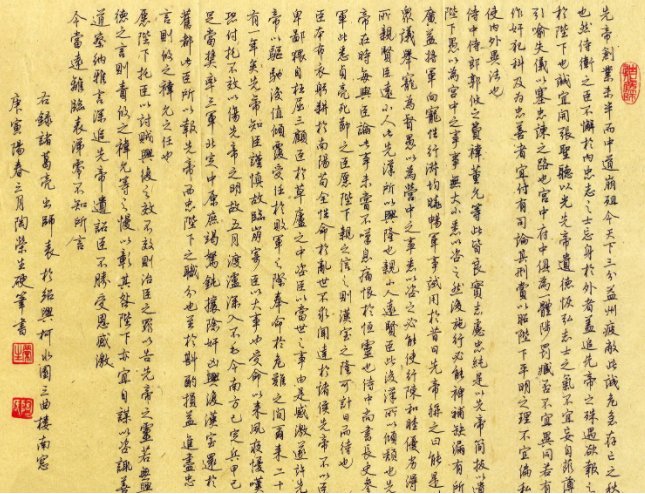 先帝創業未半而中道崩殂今天下三分益州疲敝此誠危急存亡之秋
也然侍衛之臣不懈於內忠志之士忘身於外者蓋追先帝之殊遇欲報之
於陛下也誠宜開張聖聽以光先帝遺德恢弘志士之氣不宜妄自菲薄
引喻失儀以塞忠諫之路也宮中府中俱為一體陟罰臧否不宜異同若有
作奸犯科及為忠善者宜付有司論其刑賞以昭陛下平明之理不宜偏私
使內外異法也
侍中侍郎郭攸之費禕董允等此皆良實志慮忠純是以先帝簡拔以遺
陛下愚以為宮中之事事無大小悉以咨之然後施行必能裨補闕漏有所
廣益將軍向寵性行淑均曉暢軍事試用於昔日先帝稱之曰能是以
衆議舉寵為督愚以為營中之事悉以咨之必能使行陣和睦優劣得
所親賢臣遠小人此先漢所以興隆也親小人遠賢臣此後漢所以傾頹也先
帝在時每與臣論此事未嘗不嘆息痛恨於桓靈也侍中尚書長史參
軍此悉貞亮死節之臣願陛下親之信之則漢室之隆可計日而待也
臣本布衣躬耕於南陽苟全性命於亂世不求聞達於諸侯先帝不以臣
卑鄙猥自枉屈三顧臣於草廬之中咨臣以當世之事由是感激遂許先
帝以驅馳後值傾覆受任於敗軍之際奉命於危難之間爾來二十
有一年矣先帝知臣謹慎故臨崩寄臣以大事也受命以來夙夜憂嘆
恐付托不效以傷先帝之明故五月渡瀘深入不毛今南方已定兵甲已
足當獎率三軍北定中原庶竭駑鈍攘除奸凶興復漢室還於
舊都此臣所以報先帝而忠陛下之職分也至於斟酌損益進盡忠
言則攸之禕允之任也
願陛下托臣以討賊興復之效不效則治臣之罪以告先帝之靈若無興
德之言則責攸之禕允等之慢以彰其咎陛下亦宜自謀以咨諏善
道察納雅言深追先帝遺詔臣不勝受恩感激
今當遠離臨表涕零不知所言
右錄諸葛亮出師表於紹興柯水園三曲樓南窗
庚寅陽春三月陶榮生硬筆書